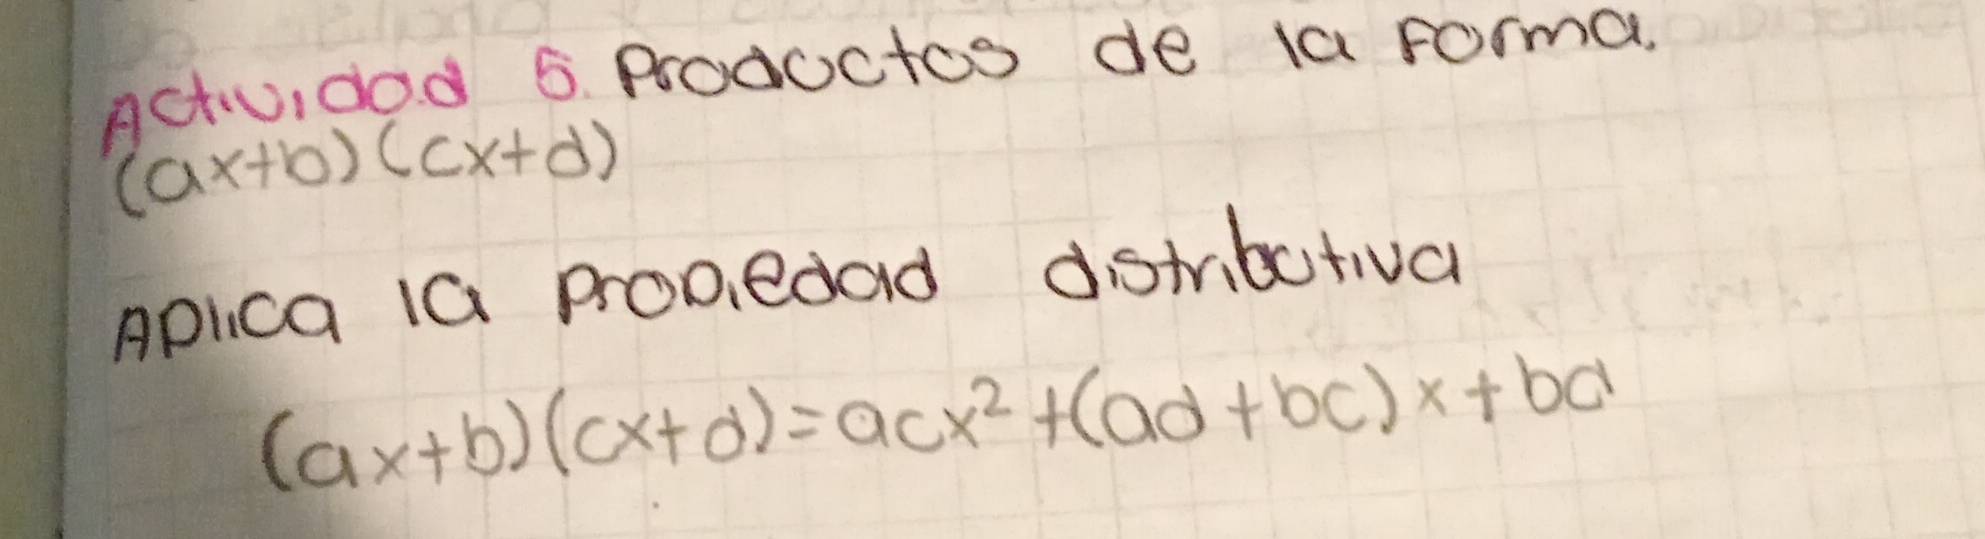 Actividad 5. Productos de la forma.
(ax+b)(cx+d)
Aplica la propiedad distributiva
(ax+b)(cx+d)=acx²+(ad+bc)x+bd